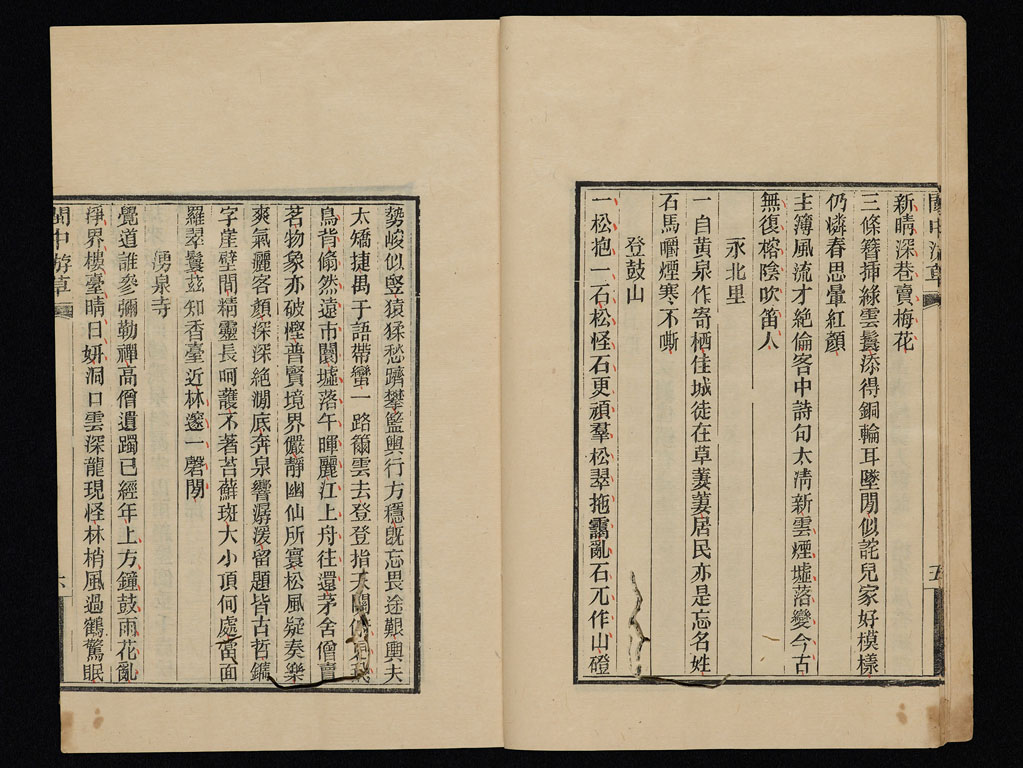 閩中游草
五
新晴深巷賣梅花
三條簪揷綠雲鬟添得銅輪耳墜閒似詫兒家好模樣
仍憐春思暈紅顏
主簿風流才絕倫客中詩句大淸新雲煙墟落變今古
無復榕陰吹笛人
永北里
一自黃泉作寄栖佳城徒在草萋萋居民亦是忘名姓
石馬嚼煙寒不嘶
登鼓山
一松抱一石松怪石更頑羣松翠拖靄亂石兀作山磴
勢峻似豎猿猱愁躋攀籃輿行方穩旣忘畏途艱輿夫
太矯捷禺于語帶蠻一路籋雲去登登指天關
鳥背翛然遠市闤墟落午暉麗江上舟往還茅舍僧賣
茗物象亦破慳普賢境界儼靜幽仙所寰松風疑奏樂
爽氣麗客顏深深絕澗底奔泉響潺湲留題皆古哲鐫
字崖壁間精靈長呵護不著苔蘚斑大小頂何處當面
羅翠鬟茲知香臺近林邃一磬閒
湧泉寺
覺道誰參彌勒禪高僧遺躅已經年上方鐘鼓雨花亂
淨界樓臺晴日妍洞口雲深龍現怪林梢風過鶴驚眠
閩中游草
六